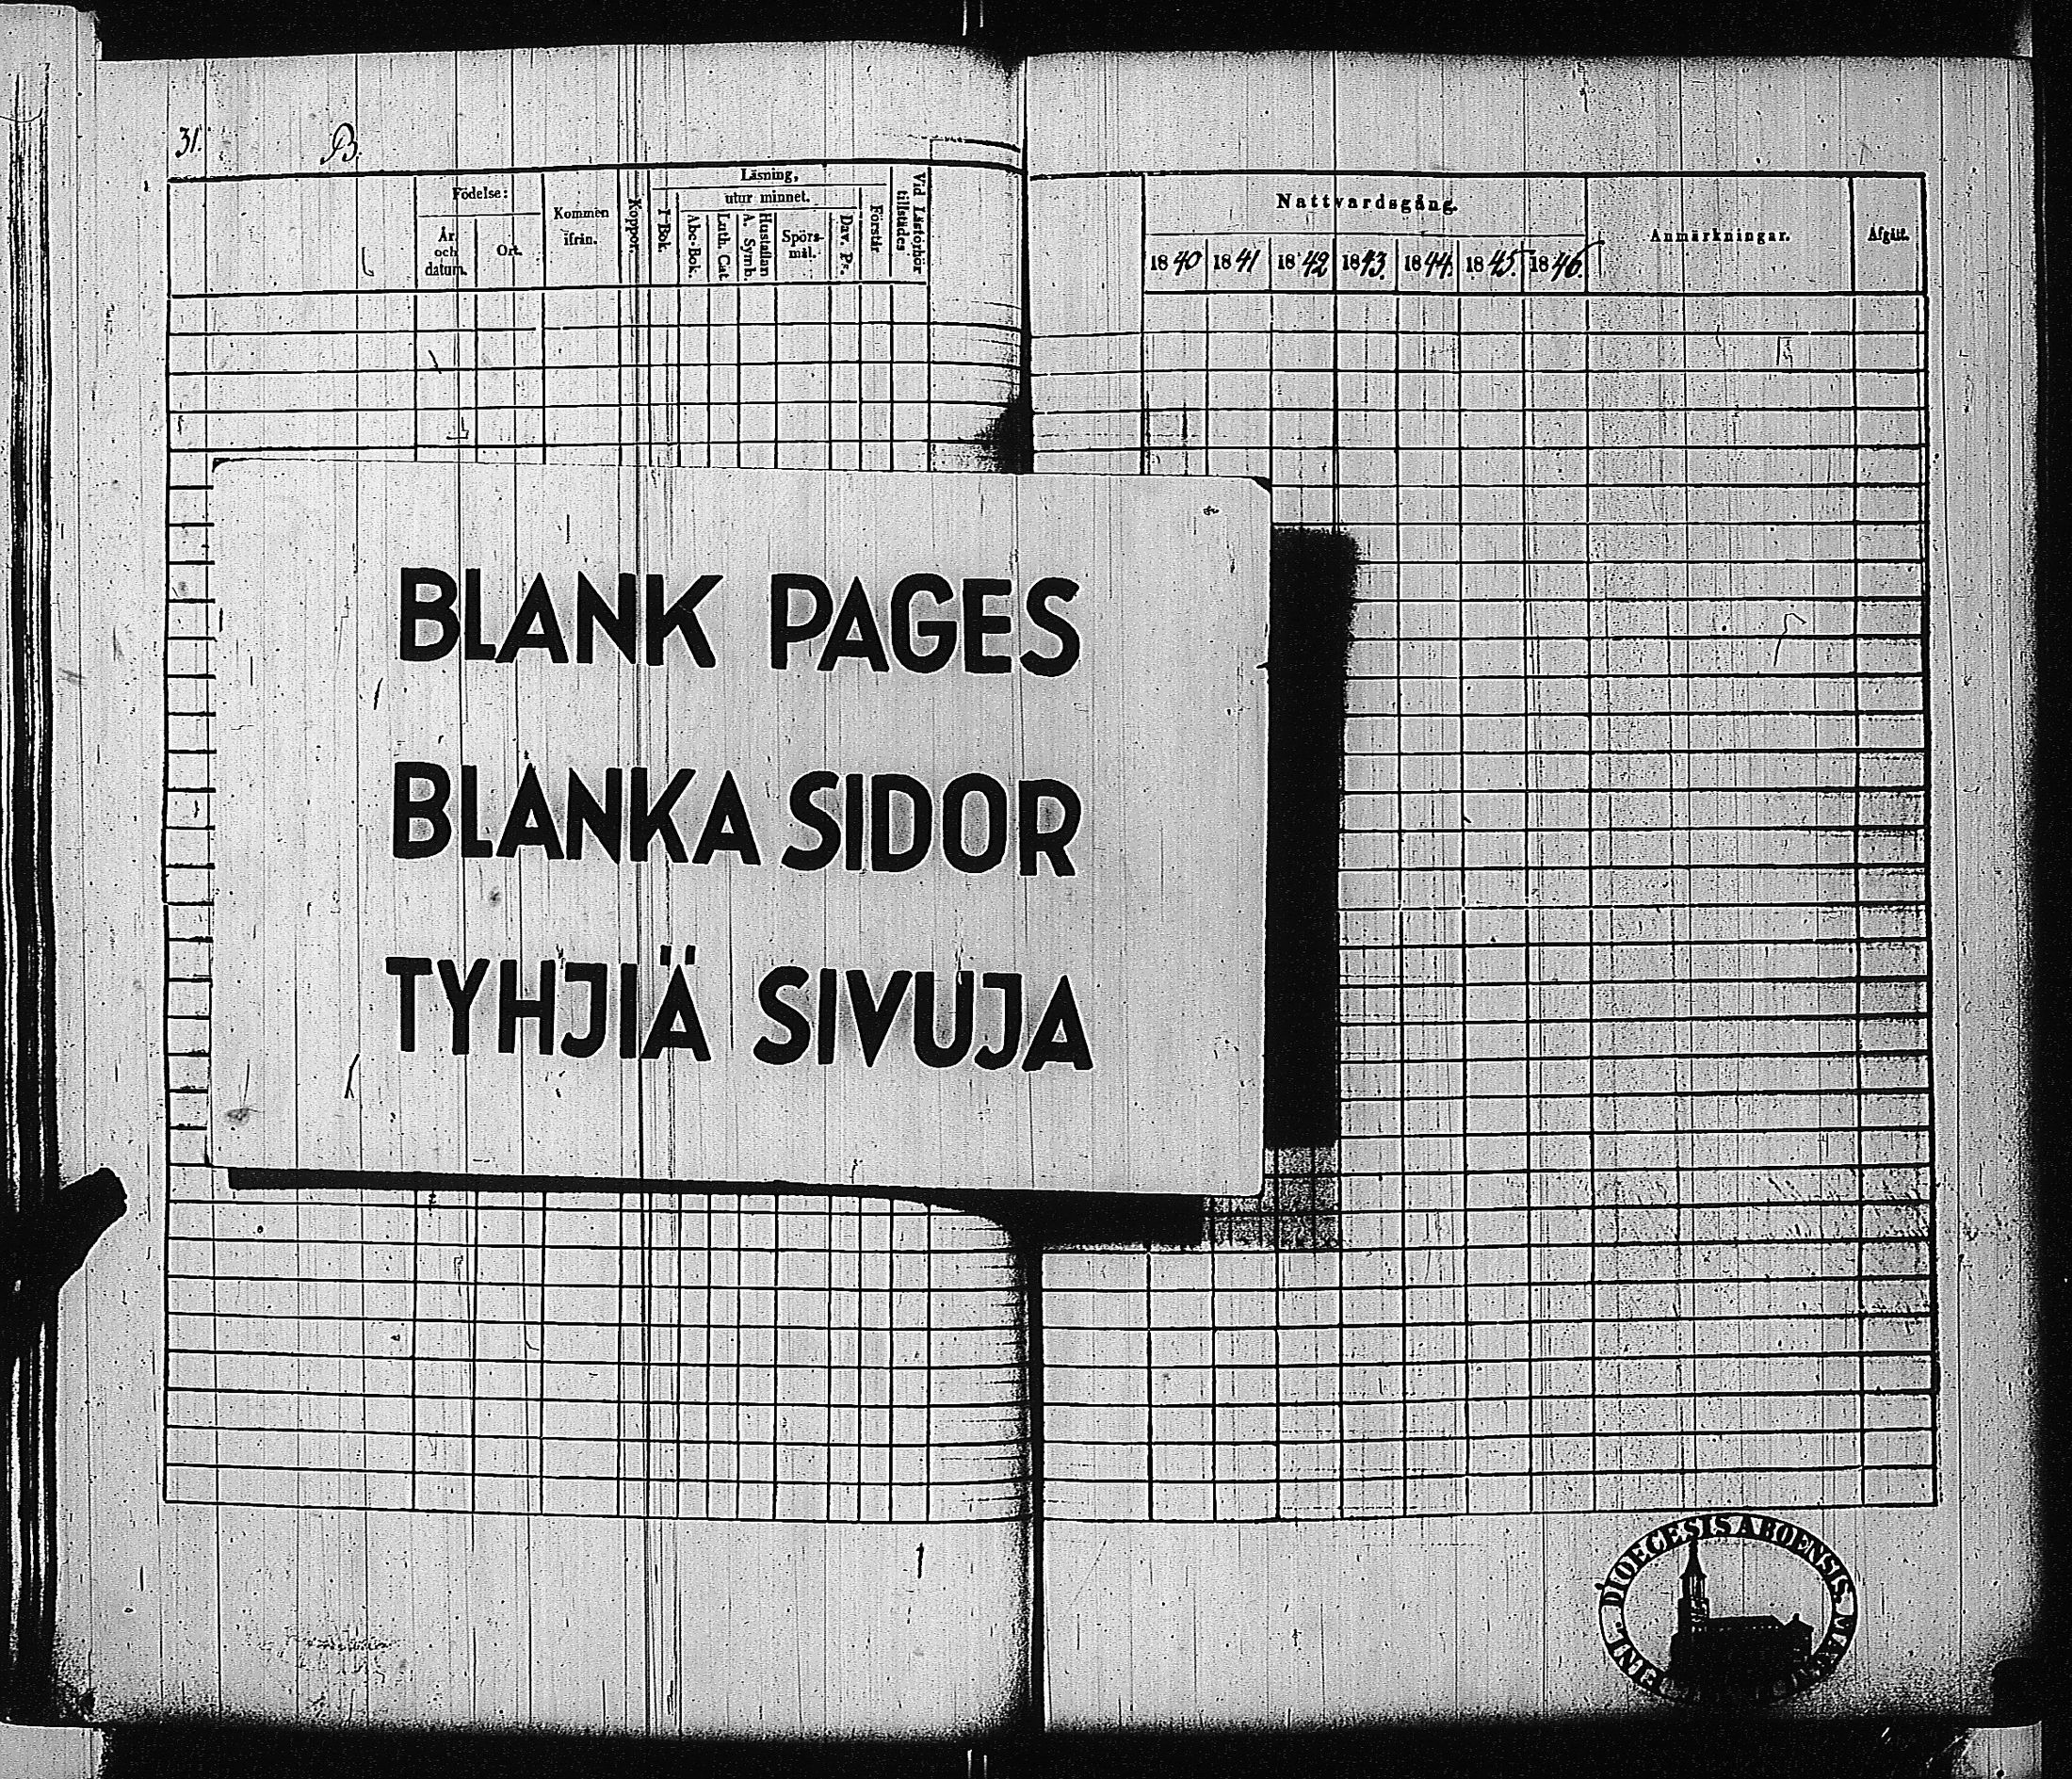 31. B.
Födelse:
År och datum.
Ort.
Kommen ifrån.
Koppor.
Läsning,
I Bok.
utur minnet.
Abc-Bok.
Luth. Cat
Hustaflan A. Symb.
Spörs-mål.
Dav. Ps.
Förstår
Vid Läsförhör tillstädes
Nattvardsgång.
1840 1841 1842 1843. 1844. 1845. 1846.
Anmärkningar.
Afgått.
BLANK PAGES
BLANKA SIDOR
TYHJIÄ SIVUJA
DIOECESIS ABOENSIS.